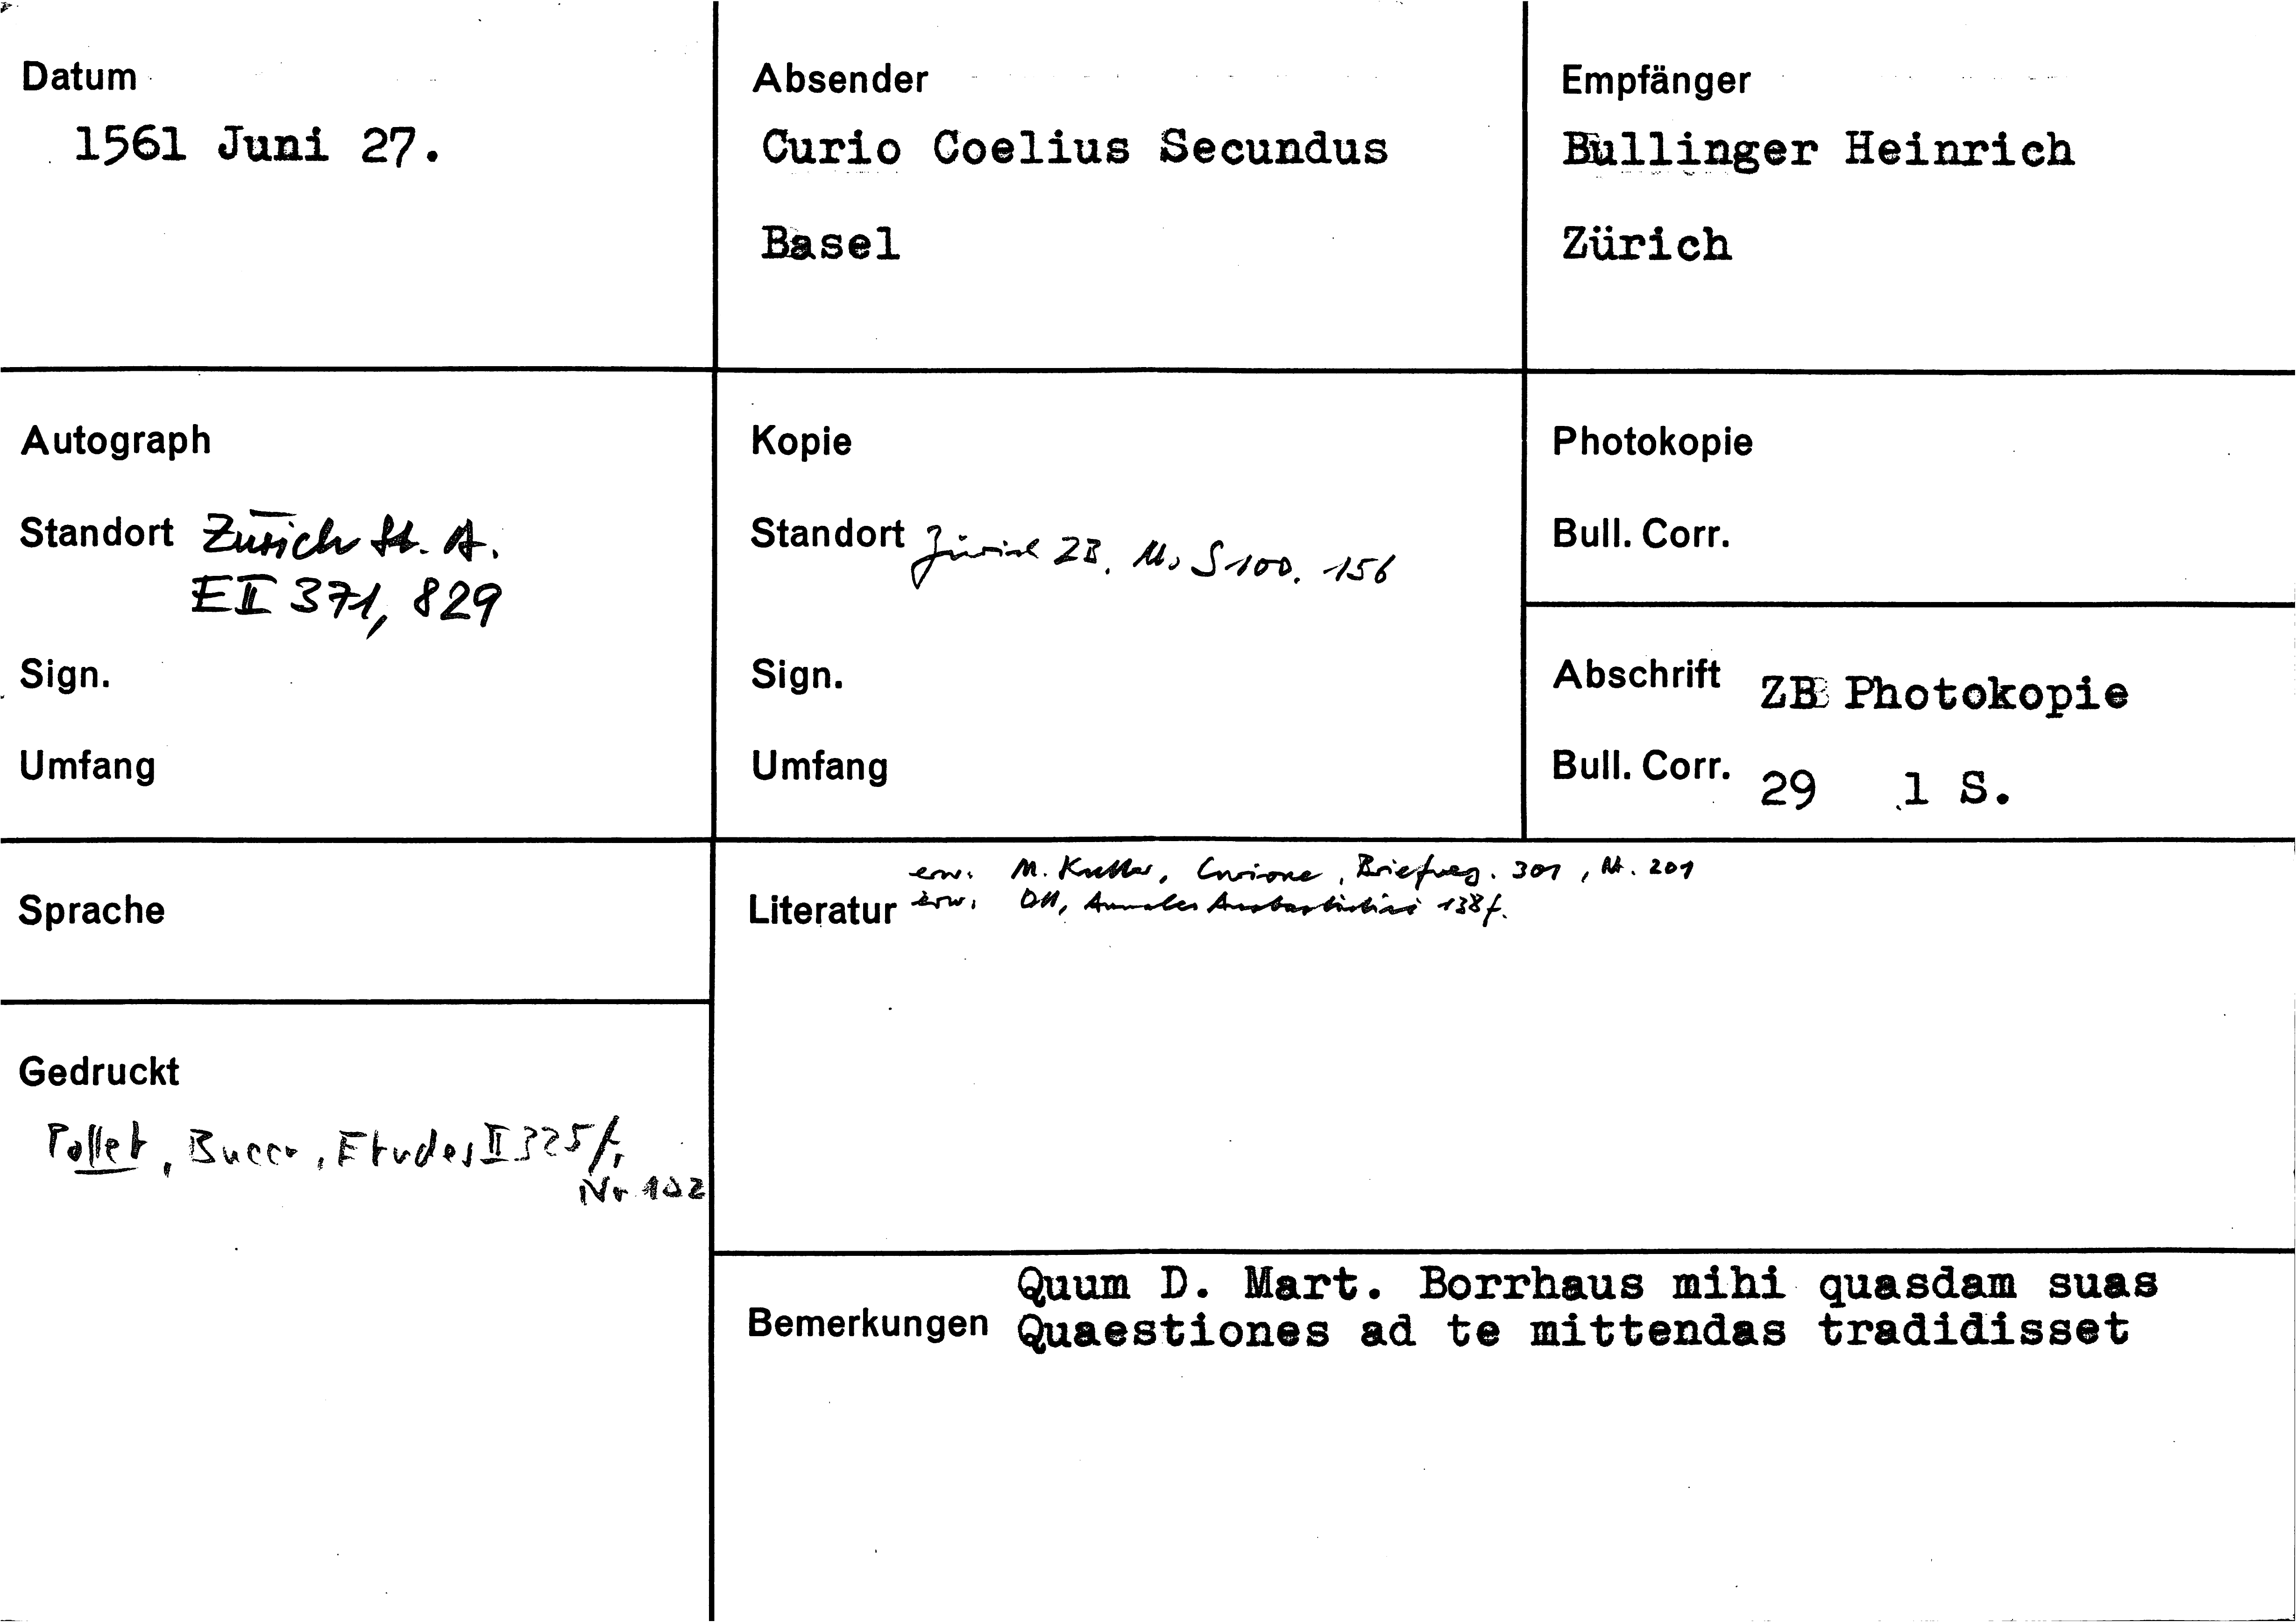 Datum
1561 Juni 27.
Absender
Curio Coelius Secundus
Basel
Empfänger
Bullinger Heinrich
Zürich
Autograph
Standort Zürich St. A.
EII 371, 829
Sign.
Umfang
Kopie
Standort Zürich ZB, Ms S 100, 156
Sign.
Umfang
Photokopie
Bull. Corr.
Abschrift ZB Photokopie
Bull. Corr. 29 1 S.
Sprache
Literatur
erw. M. Kutter, Curione, Briefverz. 301, Nr. 201
erw. Ott, Annales Anabaptistici 138f.
Gedruckt
Pollet, Bucer, Etudes II 325f,
Nr 102
Bemerkungen
Quum D. Mart. Borrhaus mihi quasdam suas
Quaestiones ad te mittendas tradidisset